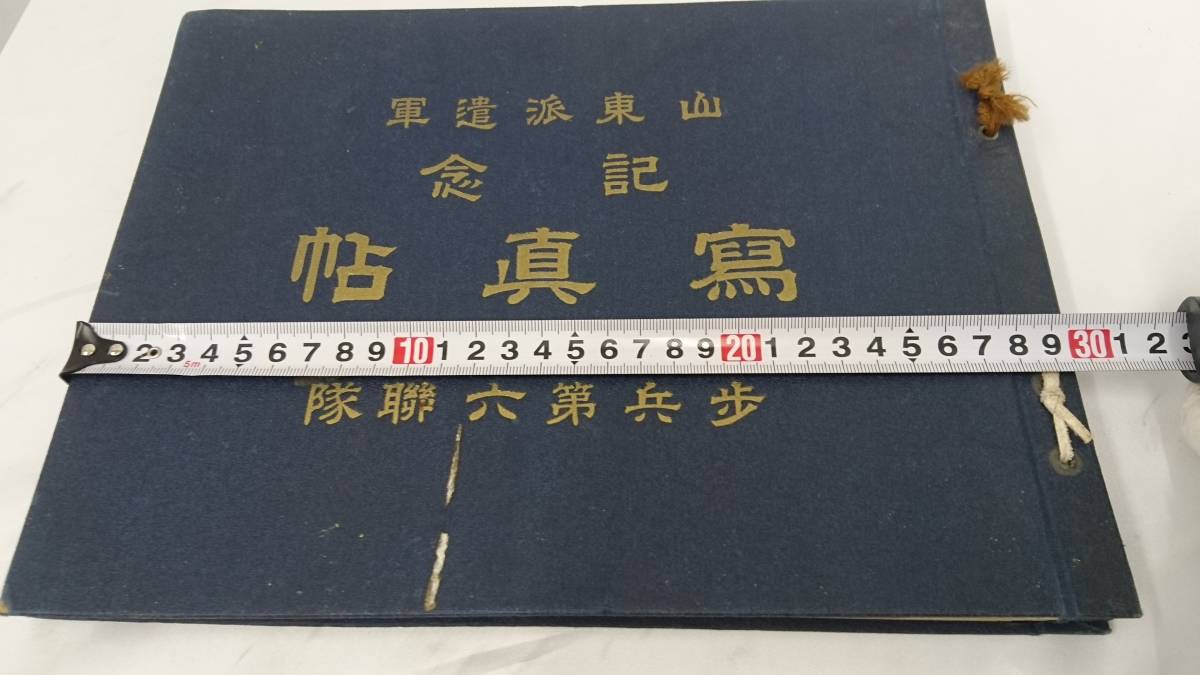 山東派遣軍
記念
寫真帖
2 3 4 5 6 7 8 9 10 1 2 3 4 5 6 7 8 9 20 1 2 3 4 5 6 7 8 9 30 1 2 3
5m
歩兵第六聯隊